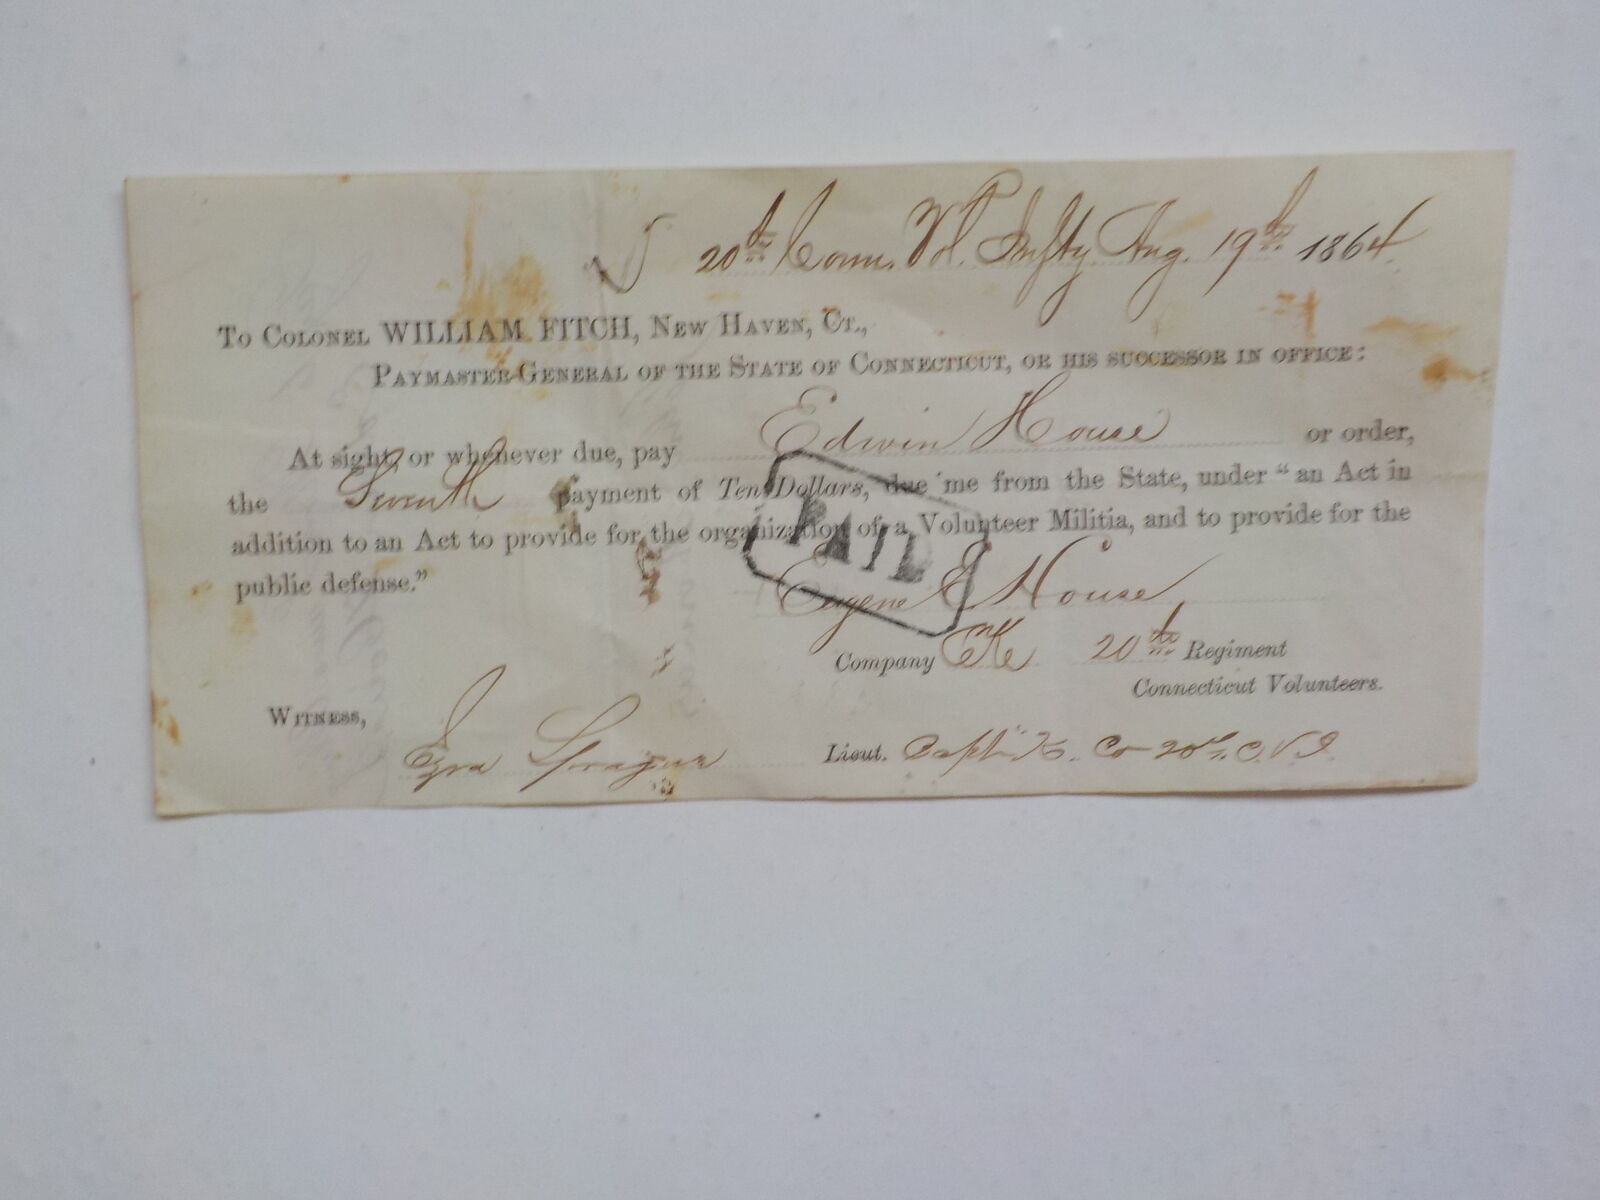 20th Conn. Vol. Infty Aug. 19th 1864
To Colonel WILLIAM FITCH, New Haven, Ct.,
Paymaster-General of the State of Connecticut, or his successor in office:
At sight, or whenever due, pay Edwin House or order,
the Seventh payment of Ten Dollars, due me from the State, under "an Act in
addition to an Act to provide for the organization of a Volunteer Militia, and to provide for the
public defense."
PAID
Eugene E House
Company "K" 20th Regiment
Connecticut Volunteers.
Witness, Ezra Sprague Lieut. Capt. K. Co 20th. C. V. I.